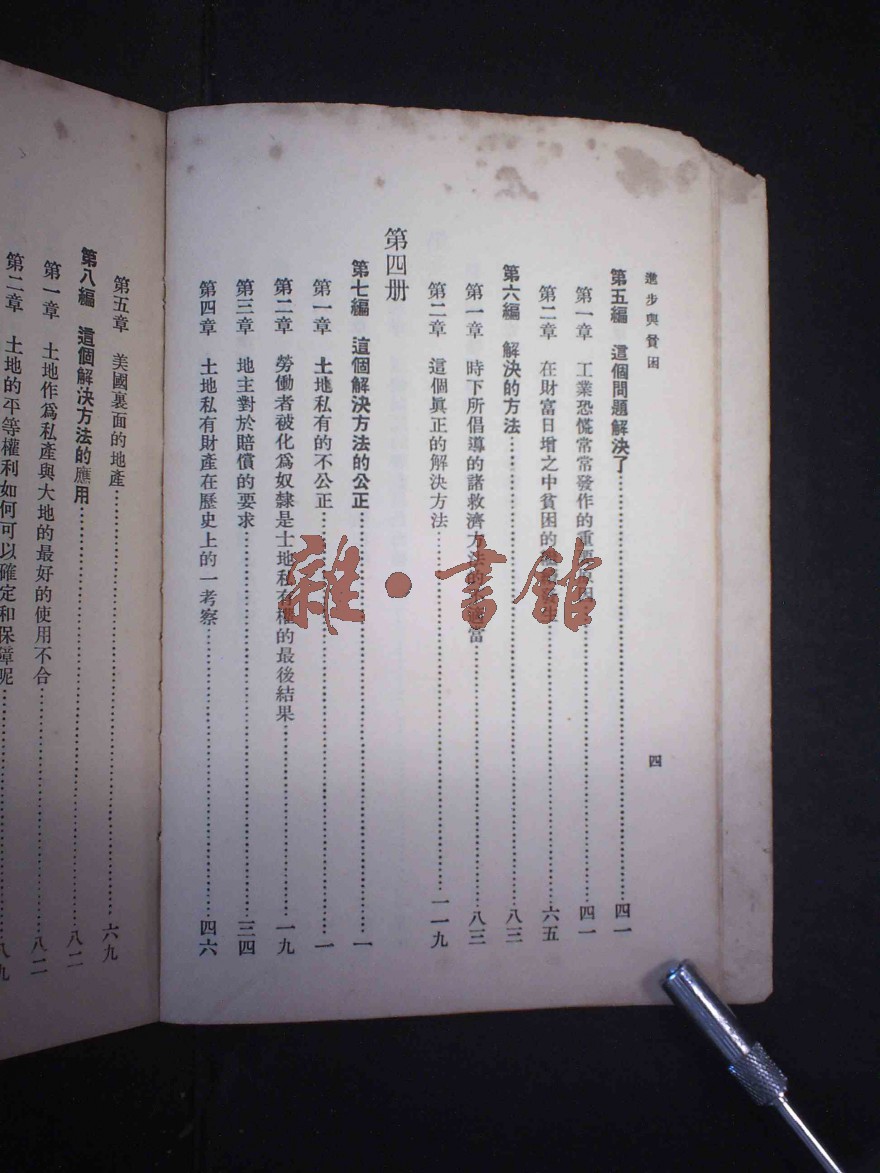 進步與貧困
四
第五編 這個問題解決了……四一
第一章 工業恐慌常常發作的重要原因……四一
第二章 在財富日增之中貧困的……六五
第六編 解決的方法……八三
第一章 時下所倡導的諸救濟方法的……當……八三
第二章 這個眞正的解決方法……一一九
第四册
第七編 這個解決方法的公正……一
第一章 土地私有的不公正……一
第二章 勞働者被化爲奴隸是土地私有權的最後結果……一九
第三章 地主對於賠償的要求……三四
第四章 土地私有財產在歷史上的一考察……四六
第五章 美國裏面的地產……六九
第八編 這個解決方法的應用……八二
第一章 土地作爲私產與大地的最好的使用不合……八二
第二章 土地的平等權利如何可以確定和保障呢……八九
雜·書館